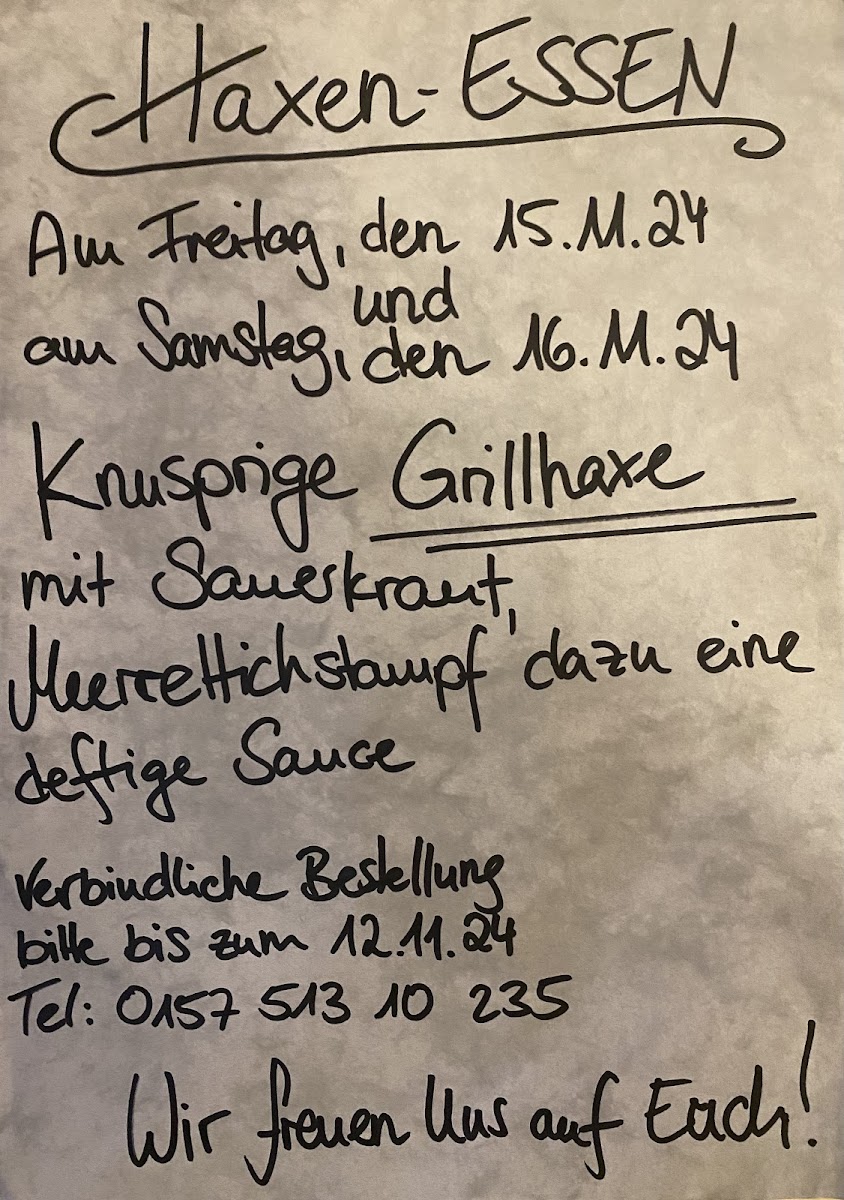 Haxen-ESSEN
Am Freitag, den 15.11.24
und
am Samstag, den 16.11.24
Knusprige Grillhaxe
mit Sauerkraut,
Meerrettichstampf dazu eine
deftige Sauce
Verbindliche Bestellung
bitte bis zum 12.11.24
Tel: 0157 513 10 235
Wir freuen Uns auf Euch!